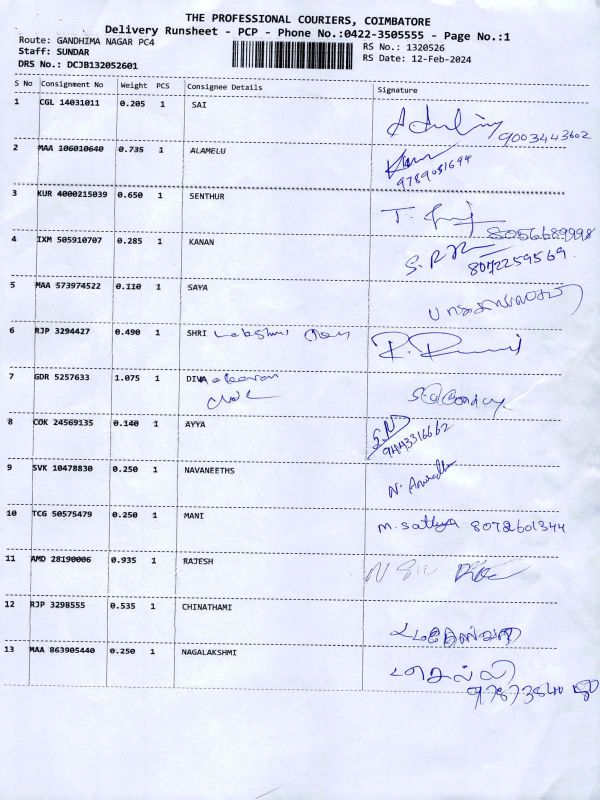 THE PROFESSIONAL COURIERS, COIMBATORE
Delivery Runsheet - PCP - Phone No.:0422-3505555 - Page No.:1
Route: GANDHIMA NAGAR PC4 RS No.: 1320526
Staff: SUNDAR RS Date: 12-Feb-2024
DRS No.: DCJB132052601
S No Consignment No Weight PCS Consignee Details Signature
1 CGL 14031011 0.205 1 SAI
9003443602
2 MAA 106010640 0.735 1 ALAMELU
9789051694
3 KUR 4000215039 0.650 1 SENTHUR
8056689998
4 IXM 505910707 0.285 1 KANAN
8072259569
5 MAA 573974522 0.110 1 SAYA
6 RJP 3294427 0.490 1 SHRI
7 GDR 5257633 1.075 1 DIVA
8 COK 24569135 0.140 1 AYYA
9443316662
9 SVK 10478830 0.250 1 NAVANEETHS
N. Anuradha
10 TCG 50575479 0.250 1 MANI
M. Sathya 8072601344
11 AMD 28190006 0.935 1 RAJESH
12 RJP 3298555 0.535 1 CHINATHAMI
13 MAA 863905440 0.250 1 NAGALAKSHMI